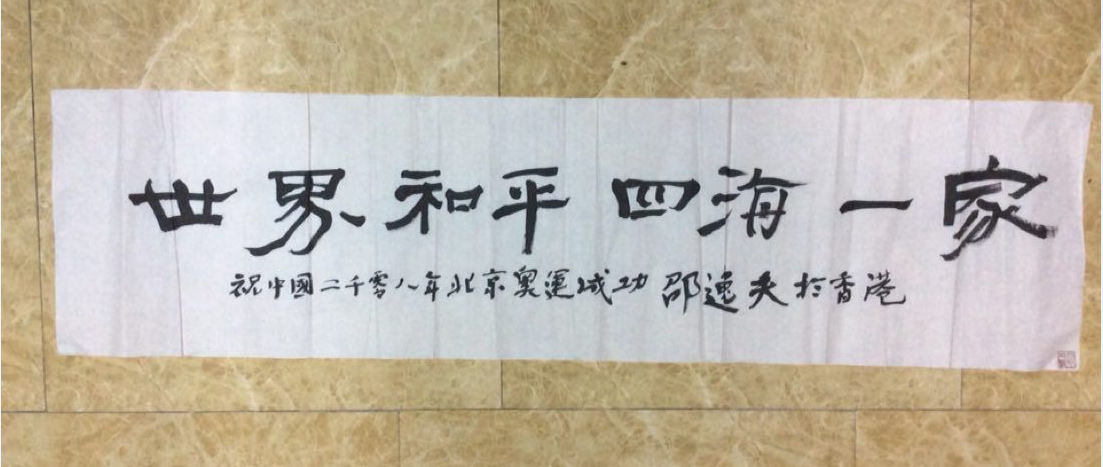 世界和平四海一家
祝中國二千零八年北京奧運成功 邵逸夫於香港